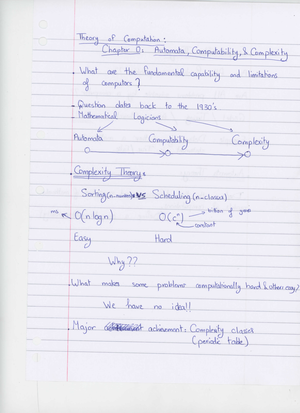 Theory of Computation:
Chapter 0: Automata, Computability, & Complexity
. What are the fundamental capability and limitations
of computers?
. Question dates back to the 1930's
. Mathematical Logicians
Automata Computability Complexity
. Complexity Theory:
Sorting (n- VS Scheduling (n-classes)
ms O(n log n) O(cⁿ) billion of years
constant
Easy Hard
Why??
. What makes some problems computationally hard & others easy?
We have no idea!!
. Major achievement: Complexity classes
(periodic table)